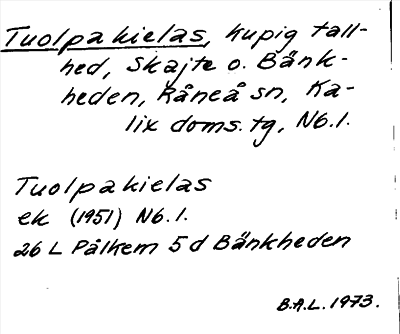 Tuolpakielas, kupig tall-
hed, Skajte o. Bänk-
heden, Råneå sn, Ka-
lix doms. tg, Nb. l.
Tuolpakielas
ek (1951) Nb. l.
26 L Pålkem 5 d Bänkheden
B.A.L. 1973.